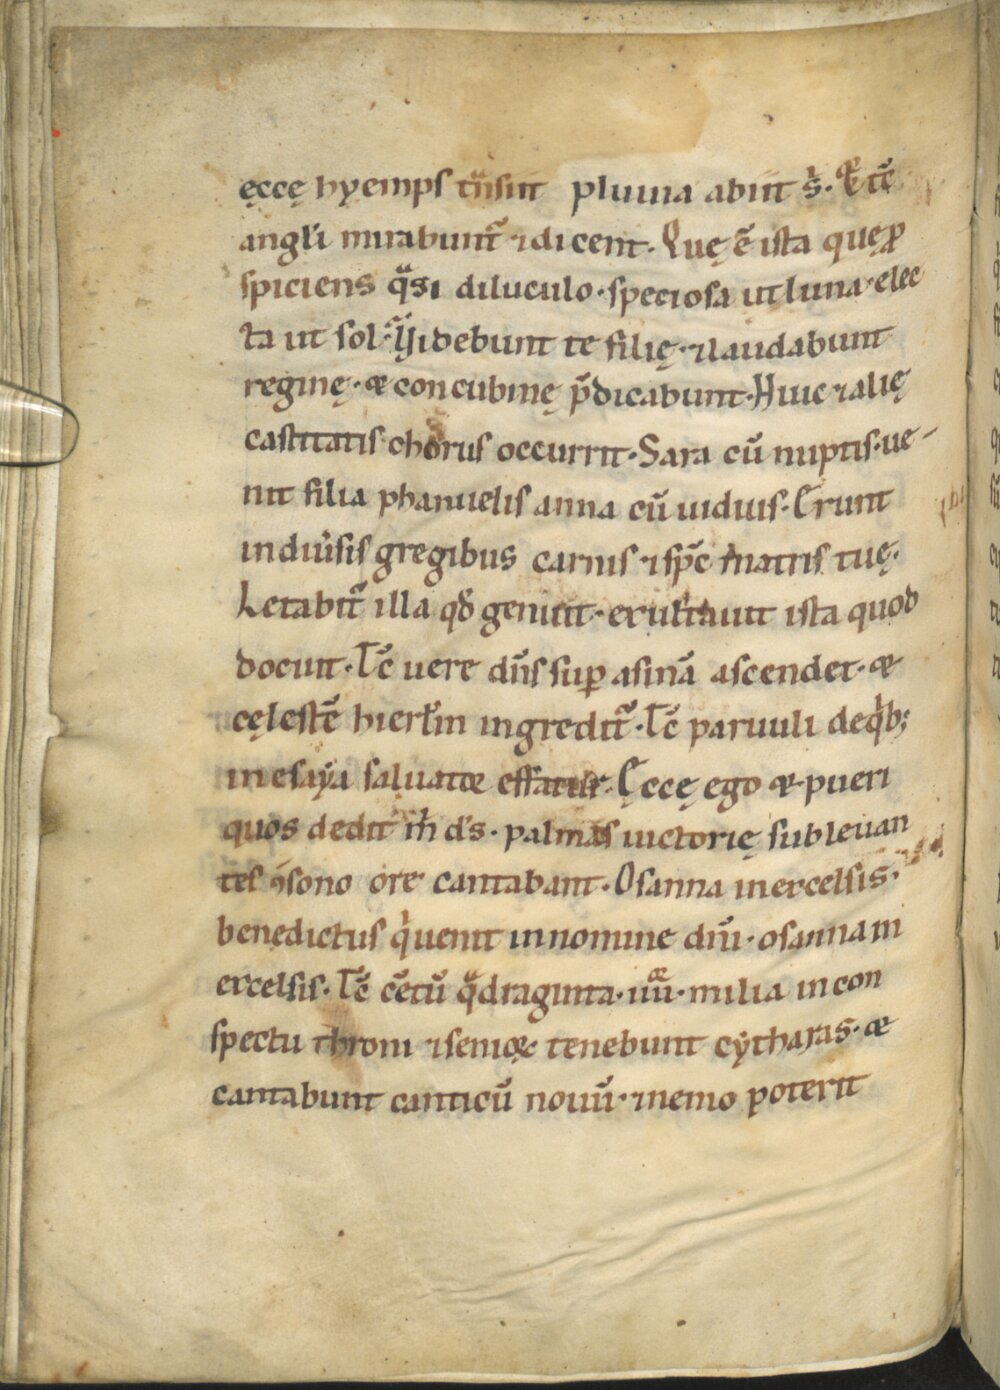 ęccę hyemps tͣnsiit pluuia abiit s̓. & tc̄
angl̓i mirabunt᷑ ⁊ dicent. Quę ē ista quę ꝓ
spiciens qͣsi diluculo. speciosa ut luna. elec
ta ut sol. Videbunt te filię. ⁊ laudabunt
reginę. & concubinę p̄dicabunt. Huic ⁊ alię
castitatis chorus occurrit. Sara cū nuptis. ue-
nit filia phanuelis anna cū uiduis. Erunt
in diu̓sis gregibus carnis ⁊ sp̄c matris tuę.
Letabit᷑ illa qđ genuit. exultauit ista quod
docuit. Tc̄ uere dn̄s suꝑ asinā ascendet. &
cęlestē hierl̓m ingredit᷑. Tc̄ paruuli de qͥb;
in esaya saluator effatur. Ęccę ego & pueri
quos dedit m̓ d̓s. palmas uictorię subleuan
tes ꝯsono ore cantabant. Osanna in excelsis.
benedictus qͥ uenit in nomine dn̄i. osanna in
excelsis. Tc̄ cētū qͣdraginta. iiii. milia in con
spectu throni ⁊ senioꝝ tenebunt cytharas. &
cantabunt canticū nouū. ⁊ nemo poterit